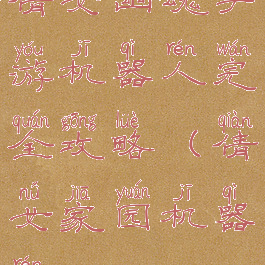 倩女幽魂手
yóu jī qì rén wán
游机器人完
quán gōng lüè qiàn
全攻略（倩
nǚ jiā yuán jī qì
女家园机器
rén